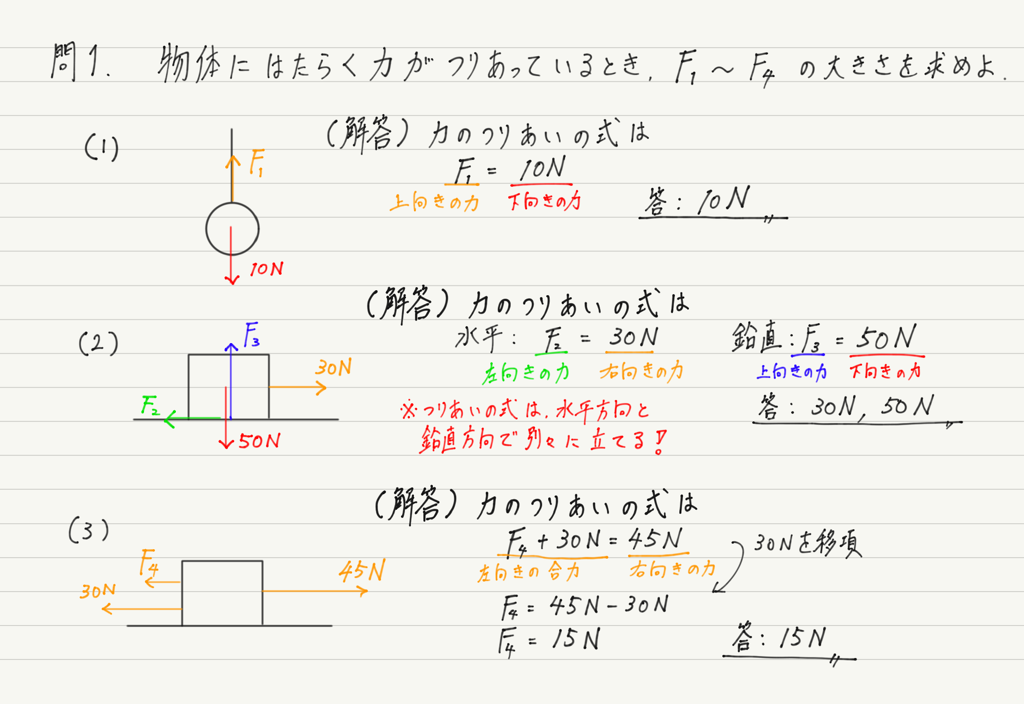 問1. 物体にはたらく力がつりあっているとき, F₁～F₄ の大きさを求めよ.
(1)
F₁
10N
(解答) 力のつりあいの式は
F₁ = 10N
上向きの力 下向きの力
答: 10N
(2)
F₃
30N
F₂
50N
(解答) 力のつりあいの式は
水平: F₂ = 30N 鉛直: F₃ = 50N
左向きの力 右向きの力 上向きの力 下向きの力
※つりあいの式は, 水平方向と
鉛直方向で別々に立てる!
答: 30N, 50N
(3)
F₄
30N
45N
(解答) 力のつりあいの式は
F₄ + 30N = 45N
左向きの合力 右向きの力
30Nを移項
F₄ = 45N - 30N
F₄ = 15N
答: 15N